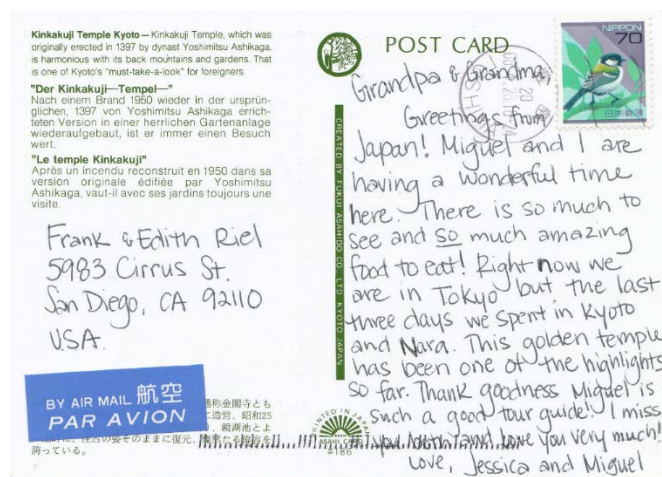 Kinkakuji Temple Kyoto — Kinkakuji Temple, which was
originally erected in 1397 by dynast Yoshimitsu Ashikaga,
is harmonious with its back mountains and gardens. That
is one of Kyoto's "must-take-a-look" for foreigners.
"Der Kinkakuji—Tempel—"
Nach einem Brand 1950 wieder in der ursprün-
glichen, 1397 von Yoshimitsu Ashikaga errich-
teten Version in einer herrlichen Gartenanlage
wiederaufgebaut, ist er immer einen Besuch
wert.
"Le temple Kinkakuji"
Après un incendu reconstruit en 1950 dans sa
version originale édifiée par Yoshimitsu
Ashikaga, vaut-il avec ses jardins toujours une
visite.
Frank & Edith Riel
5983 Cirrus St.
San Diego, CA 92110
USA.
BY AIR MAIL 航空
PAR AVION
通称金閣寺とも
に造営、昭和25
、鏡湖池とよ
のままに復元、
誇っている。
CREATED BY FUKUI ASAHIDO CO. LTD. KYOTO JAPAN
POST CARD
NIPPON
70
日本郵便
Grandpa & Grandma,
Greetings from
Japan! Miguel and I are
having a wonderful time
here. There is so much to
see and so much amazing
food to eat! Right now we
are in Tokyo but the last
three days we spent in Kyoto
and Nara. This golden temple
has been one of the highlights
so far. Thank goodness Miguel is
such a good tour guide! I miss
you both and love you very much!
Love, Jessica and Miguel
PRINTED IN JAPAN
#186